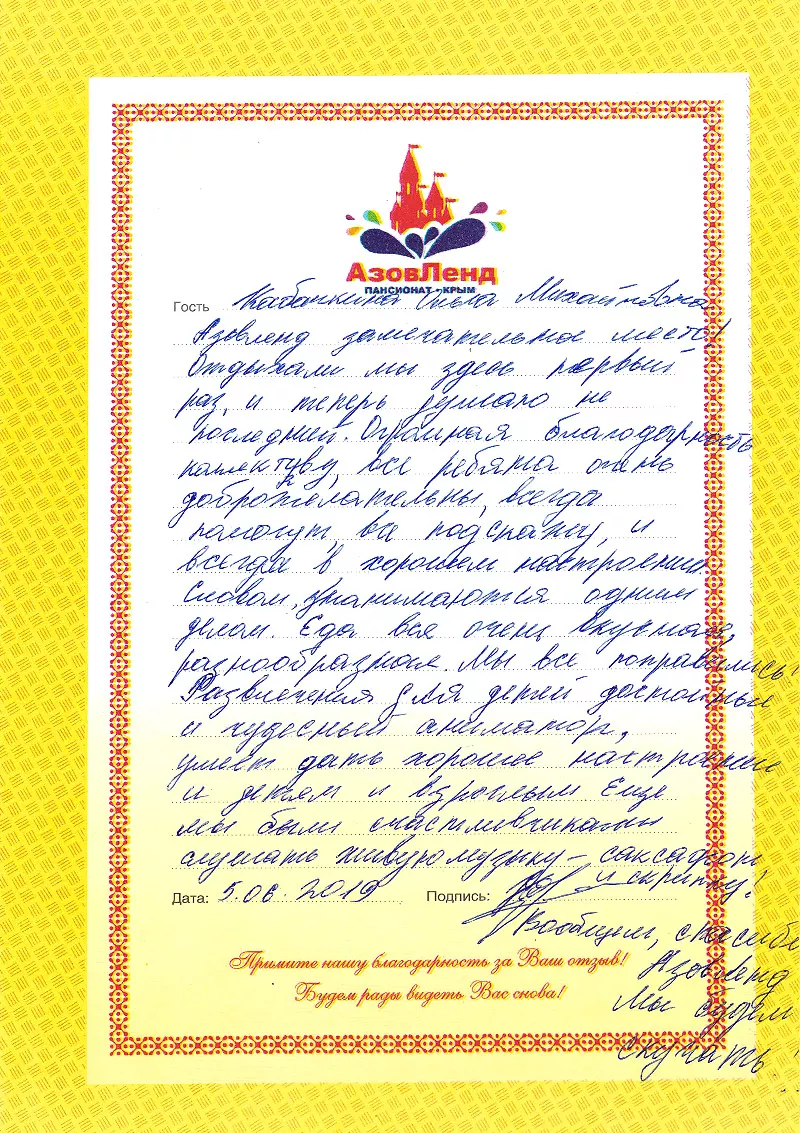 АзовЛенд
ПАНСИОНАТ • КРЫМ
Гость Михайловна
Азовленд замечательное место!
Отдыхали мы здесь первый
раз, и теперь думаю не
последний. Огромная благодарность
коллективу, все ребята очень
доброжелательны, всегда
помогут, все подскажут, и
всегда в хорошем настроении
Словом, занимаются одним
делом. Еда вся очень вкусная,
разнообразная. Мы все поправились!
Развлечения для детей достойные
и чудесный аниматор,
умеет дать хорошее настроение
и детям и взрослым Еще
мы были счастливчиками
слушать живую музыку - саксафон
и скрипку!
Дата: 5.06.2019 Подпись:
Вообщем, спасибо
Азовленд
Мы будем
скучать!
Примите нашу благодарность за Ваш отзыв!
Будем рады видеть Вас снова!